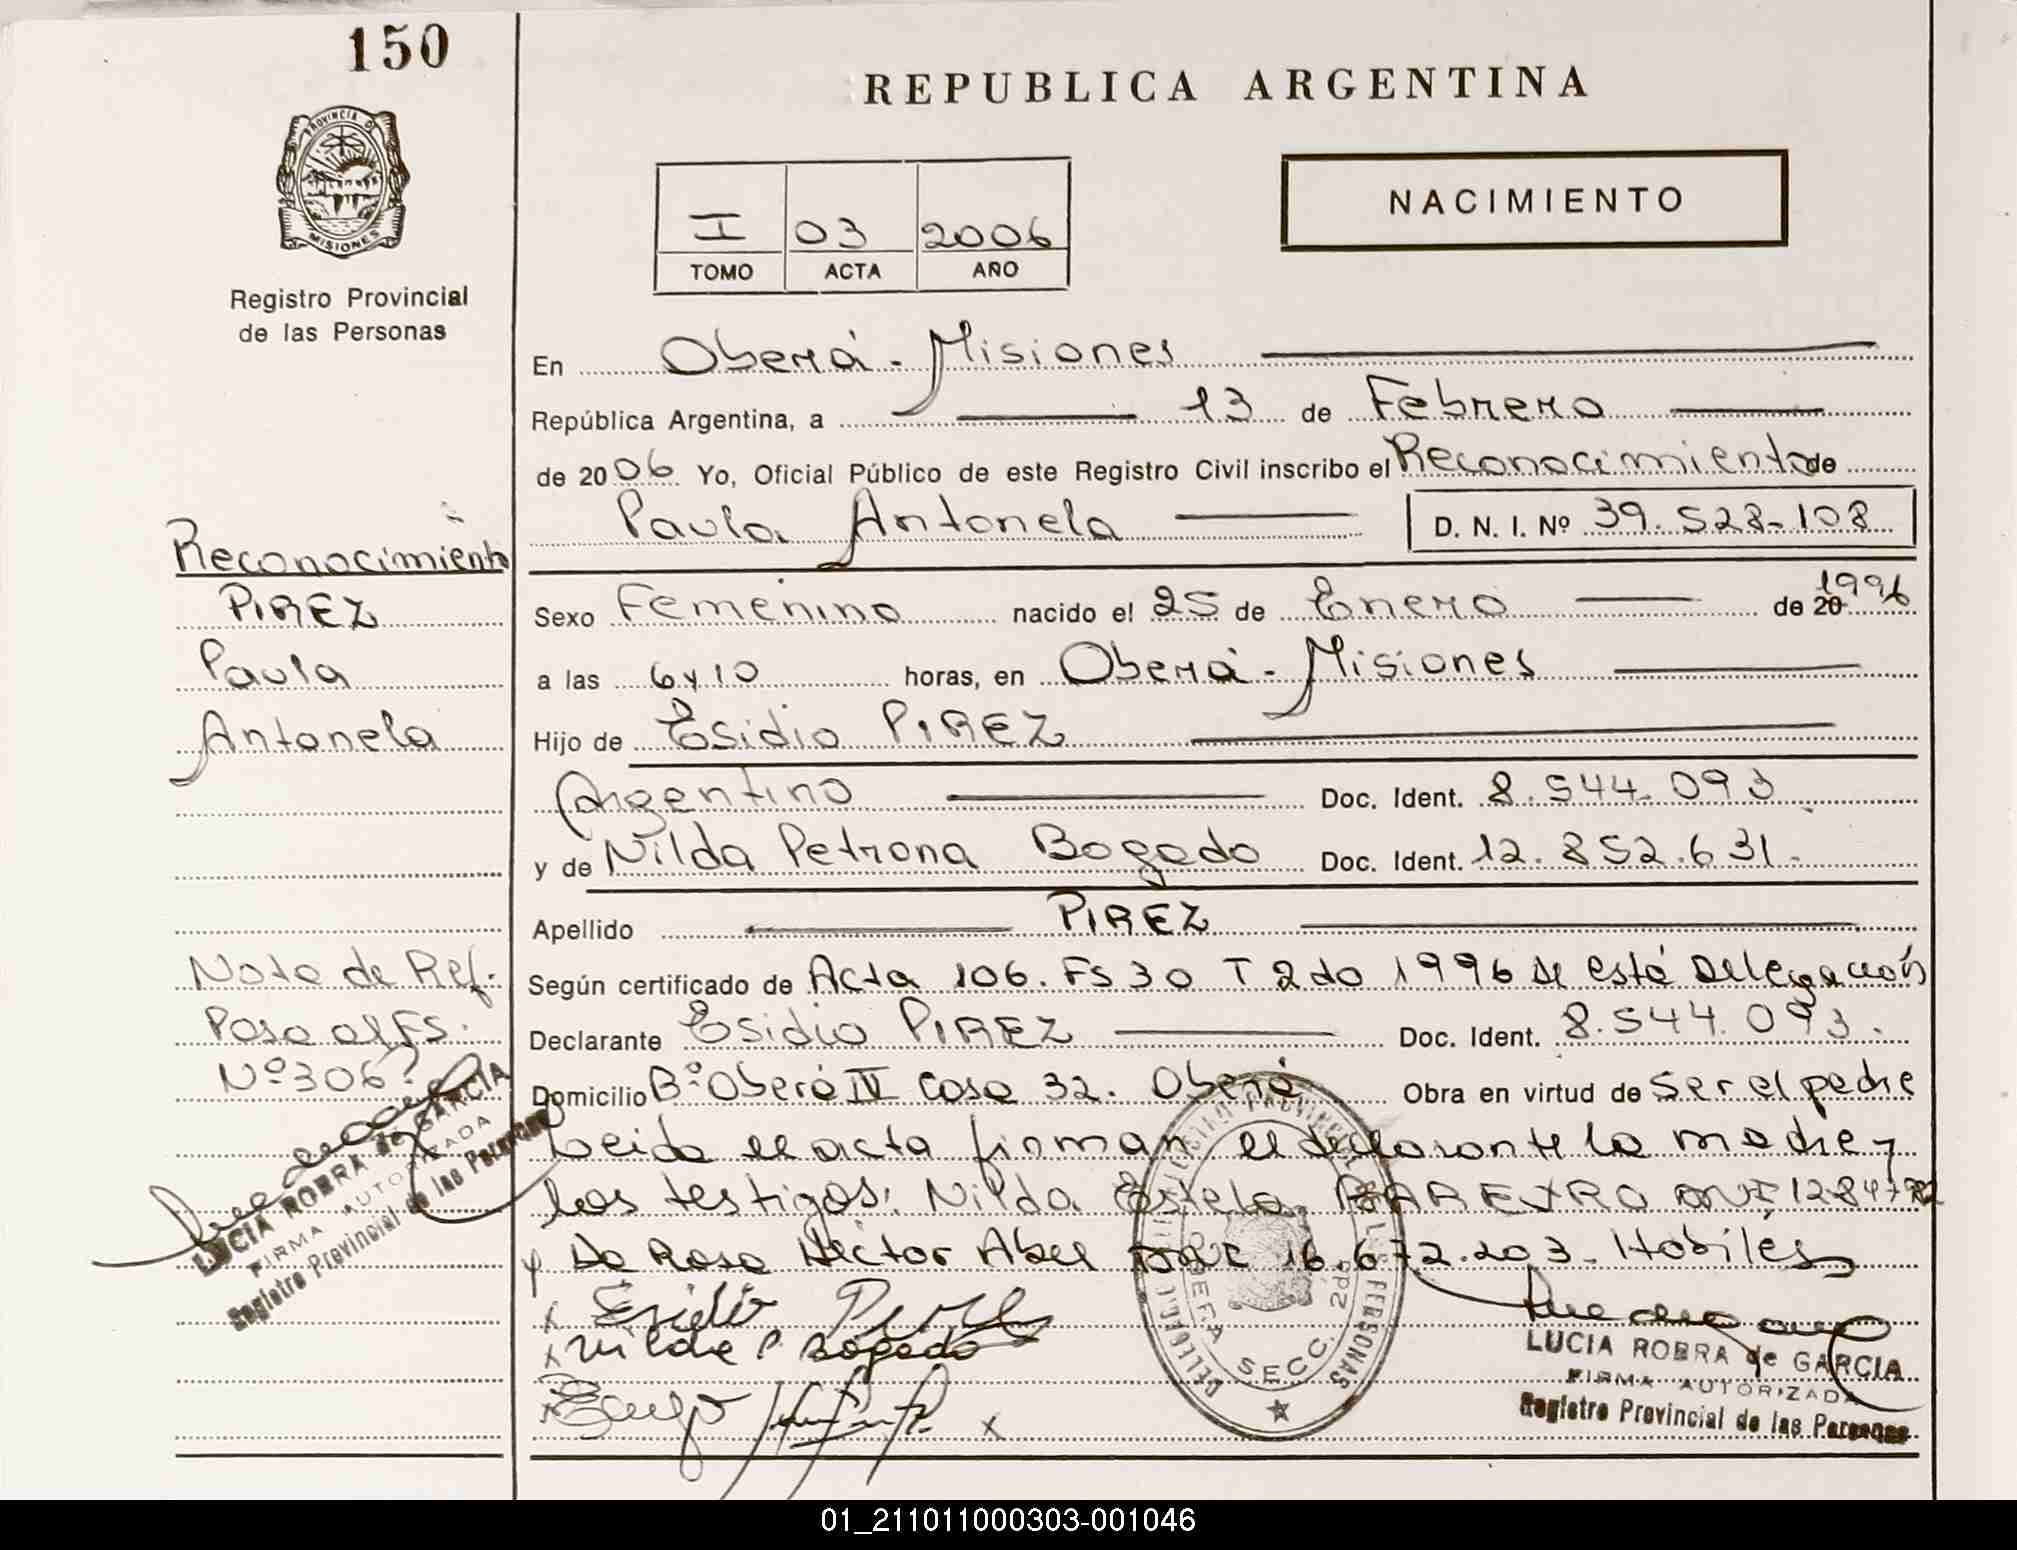 150
REPUBLICA ARGENTINA
PROVINCIA DE
MISIONES
Registro Provincial
de las Personas
I 03 2006
TOMO ACTA AÑO
NACIMIENTO
En Oberá - Misiones
República Argentina, a 13 de Febrero
de 2006 Yo, Oficial Público de este Registro Civil inscribo el Reconocimiento de
Paula Antonela D. N. I. Nº 39.528-108
Reconocimiento
PIREZ
Paula
Antonela
Sexo Femenino nacido el 25 de Enero de 20 1996
a las 6 y 10 horas, en Oberá - Misiones
Hijo de Esidio PIREZ
Argentino Doc. Ident. 8.544.093
y de Nilda Petrona Bogado Doc. Ident. 12.852.631.
Apellido PIREZ
Según certificado de Acta 106. FS 30 T 2do 1996 de esta Delegación
Declarante Esidio PIREZ Doc. Ident. 8.544.093.
Domicilio Bº Oberá IV Casa 32. Oberá Obra en virtud de ser el padre
Leida el acta firman el declarante la madre y
los testigos: Nilda Estela DNI
y Da Rosa Héctor Abel DNI 16.672.203. Hábiles
Nota de Ref.
Pasa al FS.
Nº 306
LUCIA ROBRA de GARCIA
FIRMA AUTORIZADA
Registro Provincial de las Personas
Nilda P. Bogado
SECC. 2da
LUCIA ROBRA de GARCIA
FIRMA AUTORIZADA
Registro Provincial de las Personas
01_211011000303-001046